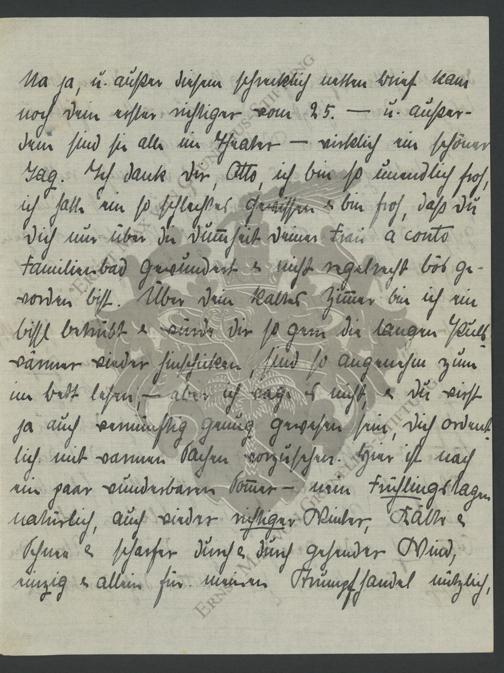 Na ja, u. außer diesem schrecklich netten brief kam
noch dein erster richtiger vom 25. — u. außer-
dem sind sie alle im Theater — wirklich ein schöner
Tag. Ich dank dir, Otto, ich bin so unendlich froh,
ich hatte ein so schlechtes Gewissen & bin froh, daß du
dich nur über die Dummheit deiner Frau a conto
Familienbad gewundert & nicht regelrecht bös ge-
worden bist. Über dein kaltes Zimmer bin ich ein
bissl betrübt & würde dir so gern die langen Puls-
wärmer wieder hinschicken, sind so angenehm zum
im bett lesen, — aber ich wage es nicht, & du wirst
ja auch vernünftig genug gewesen sein, dich ordent-
lich mit warmen Sachen vorzusehen. Hier ist nach
ein paar wunderbaren Sommer- nein Frühlingstagen
natürlich, auch wieder richtiger Winter, Kälte &
Schnee & scharfer durch & durch gehender Wind,
einzig & allein für meinen Strumpfhandel nützlich,
ERNST MAX
STIFTUNG